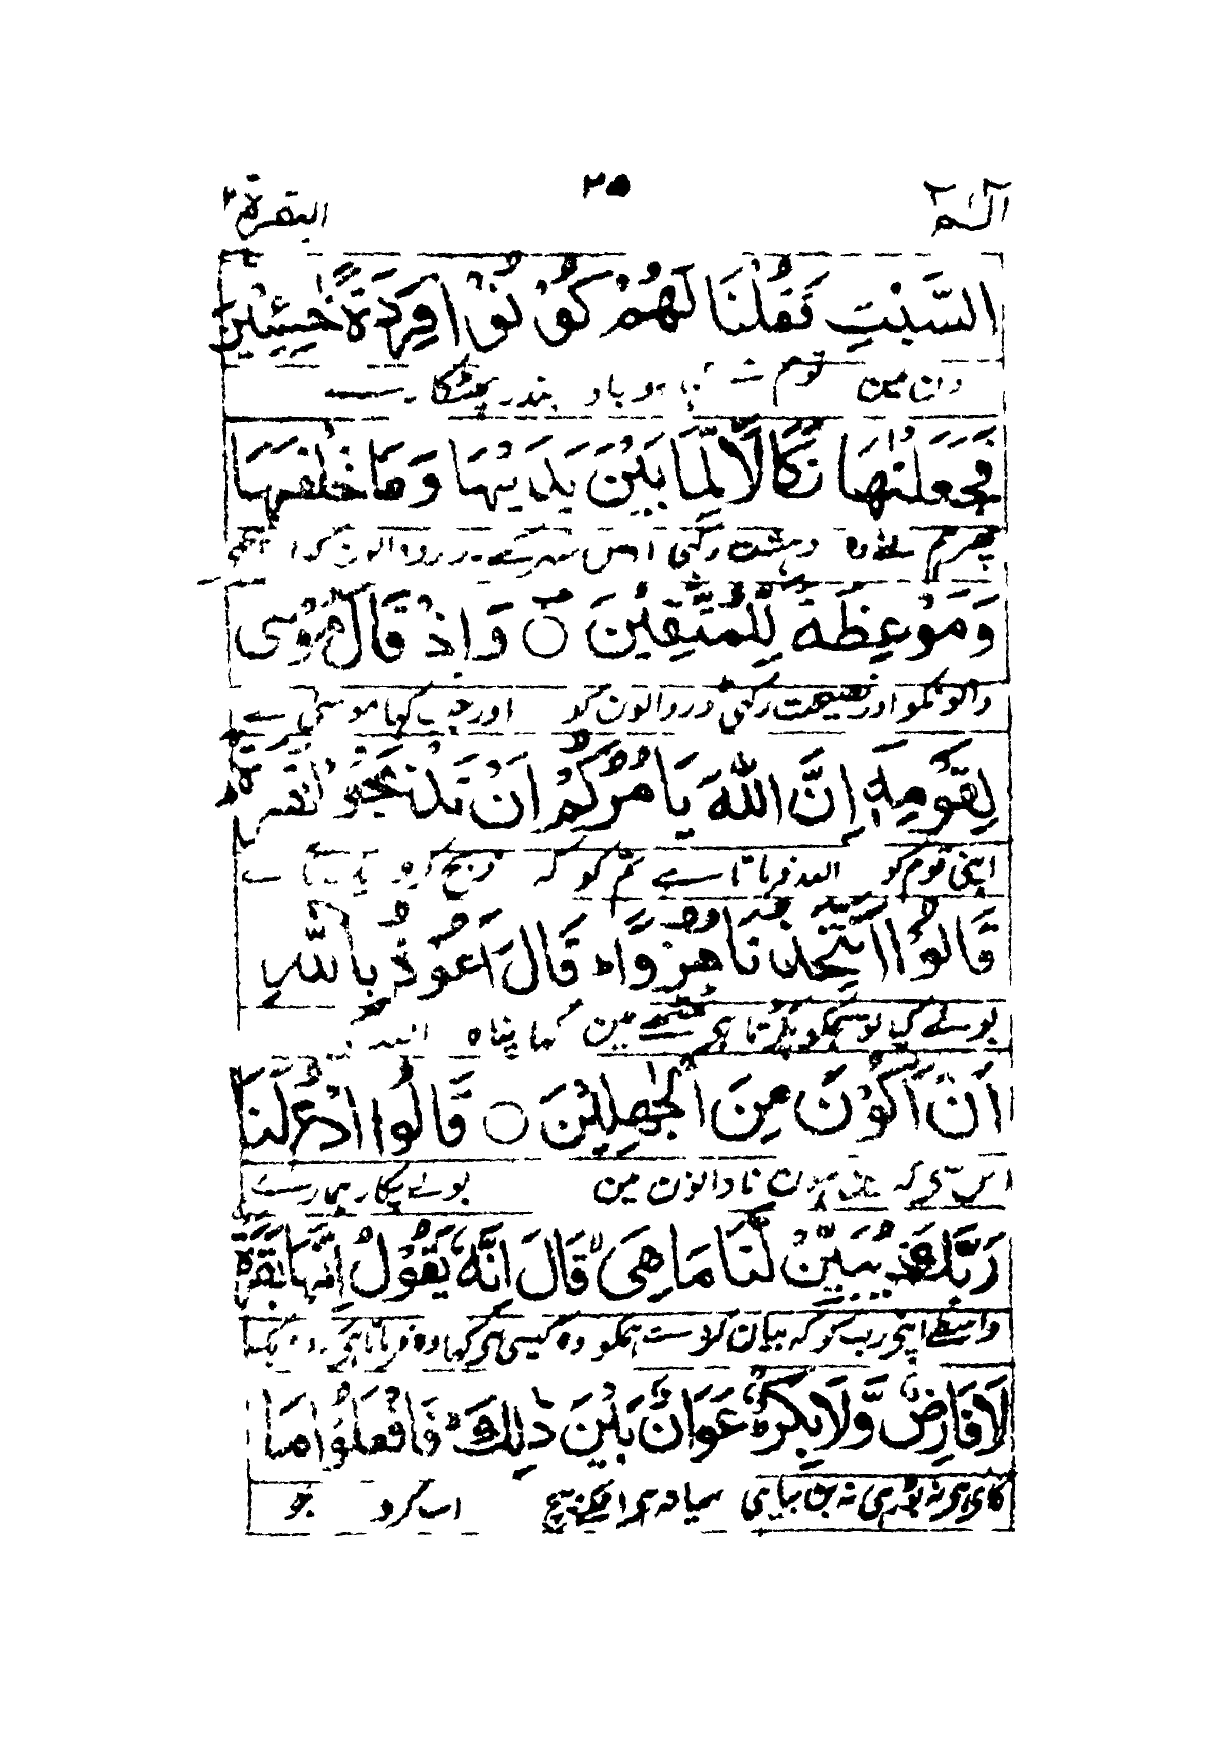 الٓمٓ ٢٥ البقرة ٢
السَّبْتِ فَقُلْنَا لَهُمْ كُوْنُوْا قِرَدَةً خٰسِـِٕيْنَ
دن مین توہم نے کہا ہو جاؤ بندر پھٹکارے
فَجَعَلْنٰهَا نَكَالًا لِّمَا بَيْنَ يَدَيْهَا وَمَا خَلْفَهَا
پھر ہم نے وہ دہشت رکھی اس شہر کے روبرو والون کو
وَمَوْعِظَةً لِّلْمُتَّقِيْنَ ۝ وَاِذْ قَالَ مُوْسٰى
والونکو اور نصیحت رکھی ڈروالون کو اور جب کہا موسی نے
لِقَوْمِهٖٓ اِنَّ اللّٰهَ يَاْمُرُكُمْ اَنْ تَذْبَحُوْا بَقَرَةً
اپنی قوم کو اللہ فرماتا ہے تم کو کہ ذبح کرو
قَالُوْٓا اَتَتَّخِذُنَا هُزُوًا ؕ قَالَ اَعُوْذُ بِاللّٰهِ
بولے کیا تو ہمکو پکڑتا ہی ٹھٹھے مین کہا پناہ اللہ
اَنْ اَكُوْنَ مِنَ الْجٰهِلِيْنَ ۝ قَالُوا ادْعُ لَنَا
اس سی کہ مین ہون نادانون مین بولے پکار ہمارے
رَبَّكَ يُبَيِّنْ لَّنَا مَا هِىَ ؕ قَالَ اِنَّهٗ يَقُوْلُ اِنَّهَا بَقَرَةٌ
واسطے اپنی رب کو کہ بیان کر دے ہمکو وہ کیسی ہی کہا وہ فرماتا ہی وہ ایک
لَّا فَارِضٌ وَّلَا بِكْرٌ ؕ عَوَانٌۢ بَيْنَ ذٰلِكَ ؕ فَافْعَلُوْا مَا
گای ہی نہ بوڑھی نہ بن بیاہی میانہ ہی انکے بیچ اب کرو جو